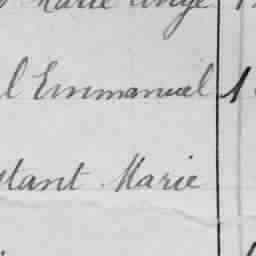 Marie Ange
l Emmanuel 1
stant Marie